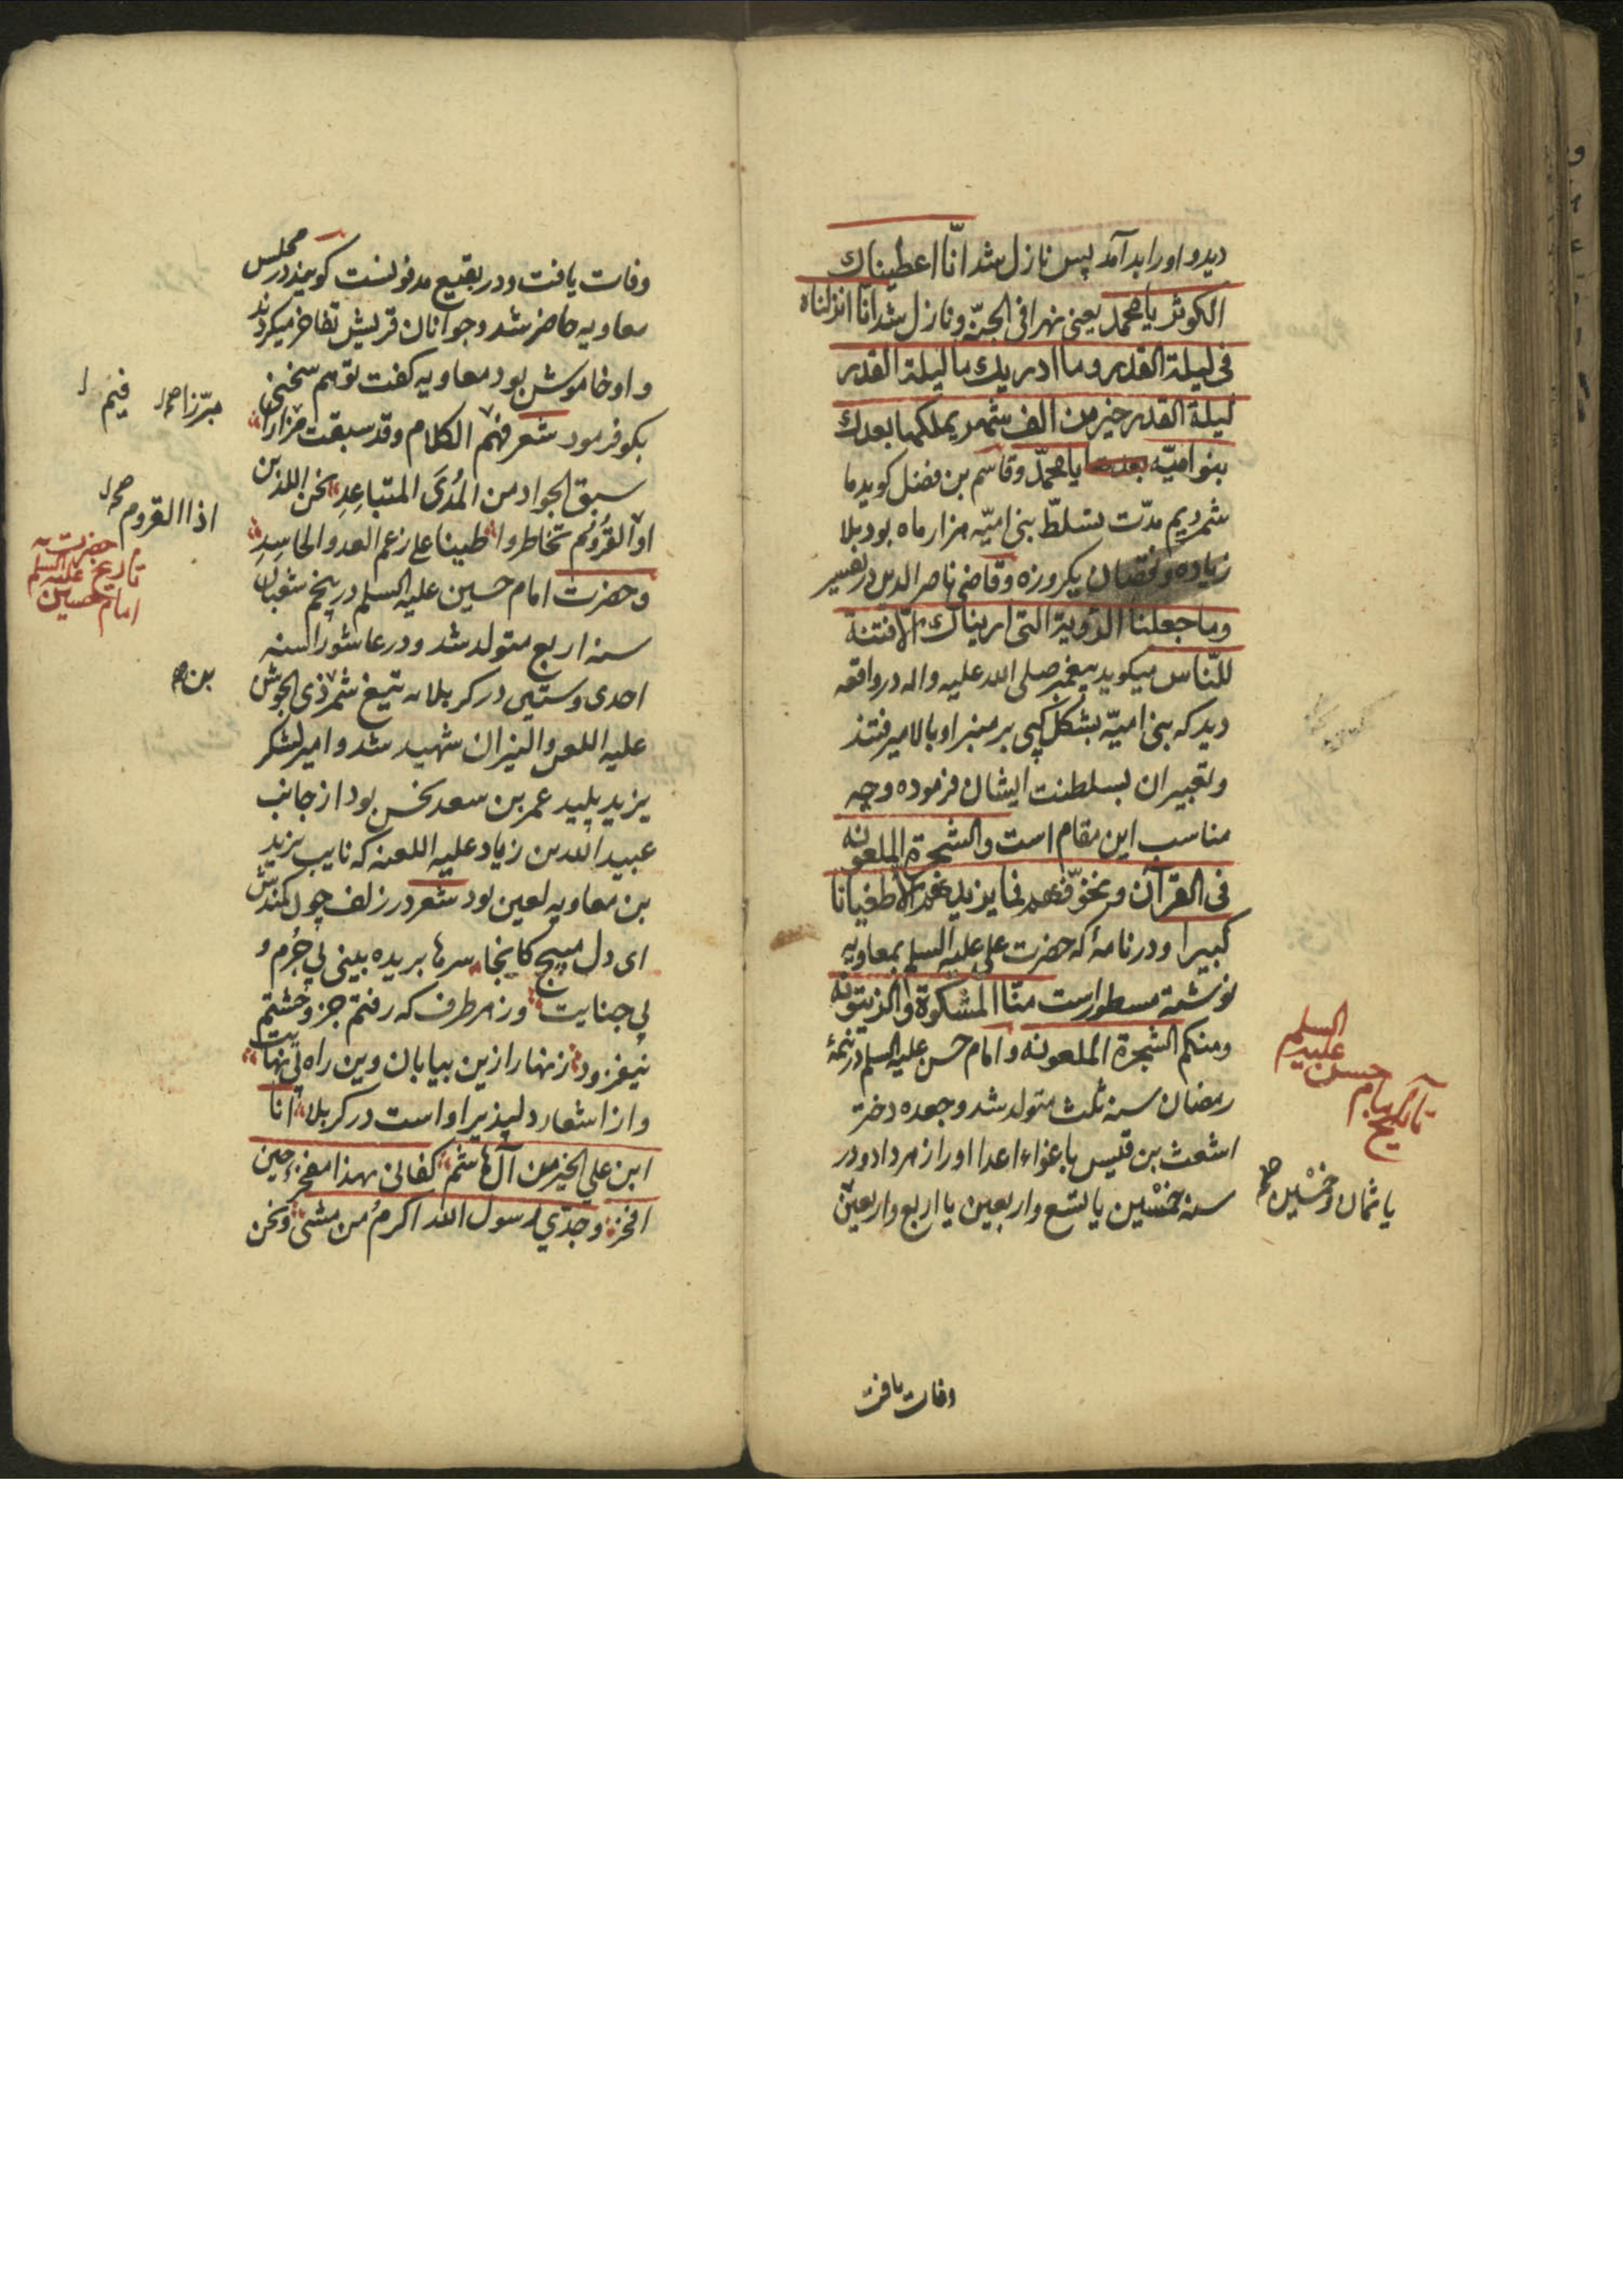 دید و اورا بد آمد پس نازل شد انّا اعطیناك
الکوثر یا محمد یعنی نهرا فی الجنّة و نازل شد انا انزلناه
فی لیلة القدر وما ادریك ما لیلة القدر
لیلة القدر خیر من الف شهر یملکها بعدك
بنو امیّه یا محمّد و قاسم بن فضل کوید ما
شمردیم مدّت تسلّط بنی امیّه هزار ماه بود بلا
زیاده و نقصان یکروزه و قاضی ناصر الدین در تفسیر
وما جعلنا الرؤیة التی اریناك الا فتنة
للنّاس میکوید پیغمبر صلی الله علیه واله در واقعه
دید که بنی امیّه بشکل کپی بر منبر او بالا میرفتند
و تعبیر ان بسلطنت ایشان فرموده و چه
مناسب این مقام است والشجرة الملعونه
فی القرآن و نخوّفهم فما یزیدهم الا طغیانا
کبیرا و در نامهٔ که حضرت علی علیه السلم بمعاویه
نوشته مسطور است منّا المشکوة والزیتونه
ومنکم الشجرة الملعونه و امام حسن علیه السلم در نیمهٔ
رمضان سنه ثلث متولد شد و جعده دختر
اشعث بن قیس باغواء اعدا اورا زهر داد و در
سنه خمسین یا تسع واربعین یا اربع واربعین
تاریخ امام
حسن
علیه
السلم
یا ثمان وخمسین صح
وفات یافت
وفات یافت و در بقیع مدفونست کویند در مجلس
معاویه حاضر شد و جوانان قریش تفاخر میکردند
و او خاموش بود معاویه کفت تو هم سخنی
بکو فرمود شعر فیم الکلام وقد سبقت مبرزا
سبق الجواد من المُدَی المتباعِدِ نحن الذین
اوالقُرُوم تخاطروا طبنا علی رغم العدو والحاسِدِ
و حضرت امام حسین علیه السلم در پنجم شعبان
سنه اربع متولد شد و در عاشورا سنه
احدی وستین در کربلا به تیغ شمر ذی الجوشن
علیه اللعن والنیران شهید شد و امیر لشکر
یزید پلید عمر بن سعد نحس بود از جانب
عبید الله بن زیاد علیه اللعنه که نایب یزید
بن معاویه لعین بود شعر در زلف چون کمندش
ای دل مپیچ کاینجا سرها بریده بینی بی جُرم و
بی جنایت وز هر طرف که رفتم جز وحشتم
نیفزود زنهار ازین بیابان وین راه بی نهایت
و از اشعار دلپذیر او است در کربلا انا
ابن علی الخیر من آل هاشم کفانی بهذا مفخر حین
افخر وجدّی رسول الله اکرمُ من مشی ونحن
فیم
مبرّزا صح
اذا القروم صح
تاریخ حضرت
امام حسین
علیه السلم
بن صح